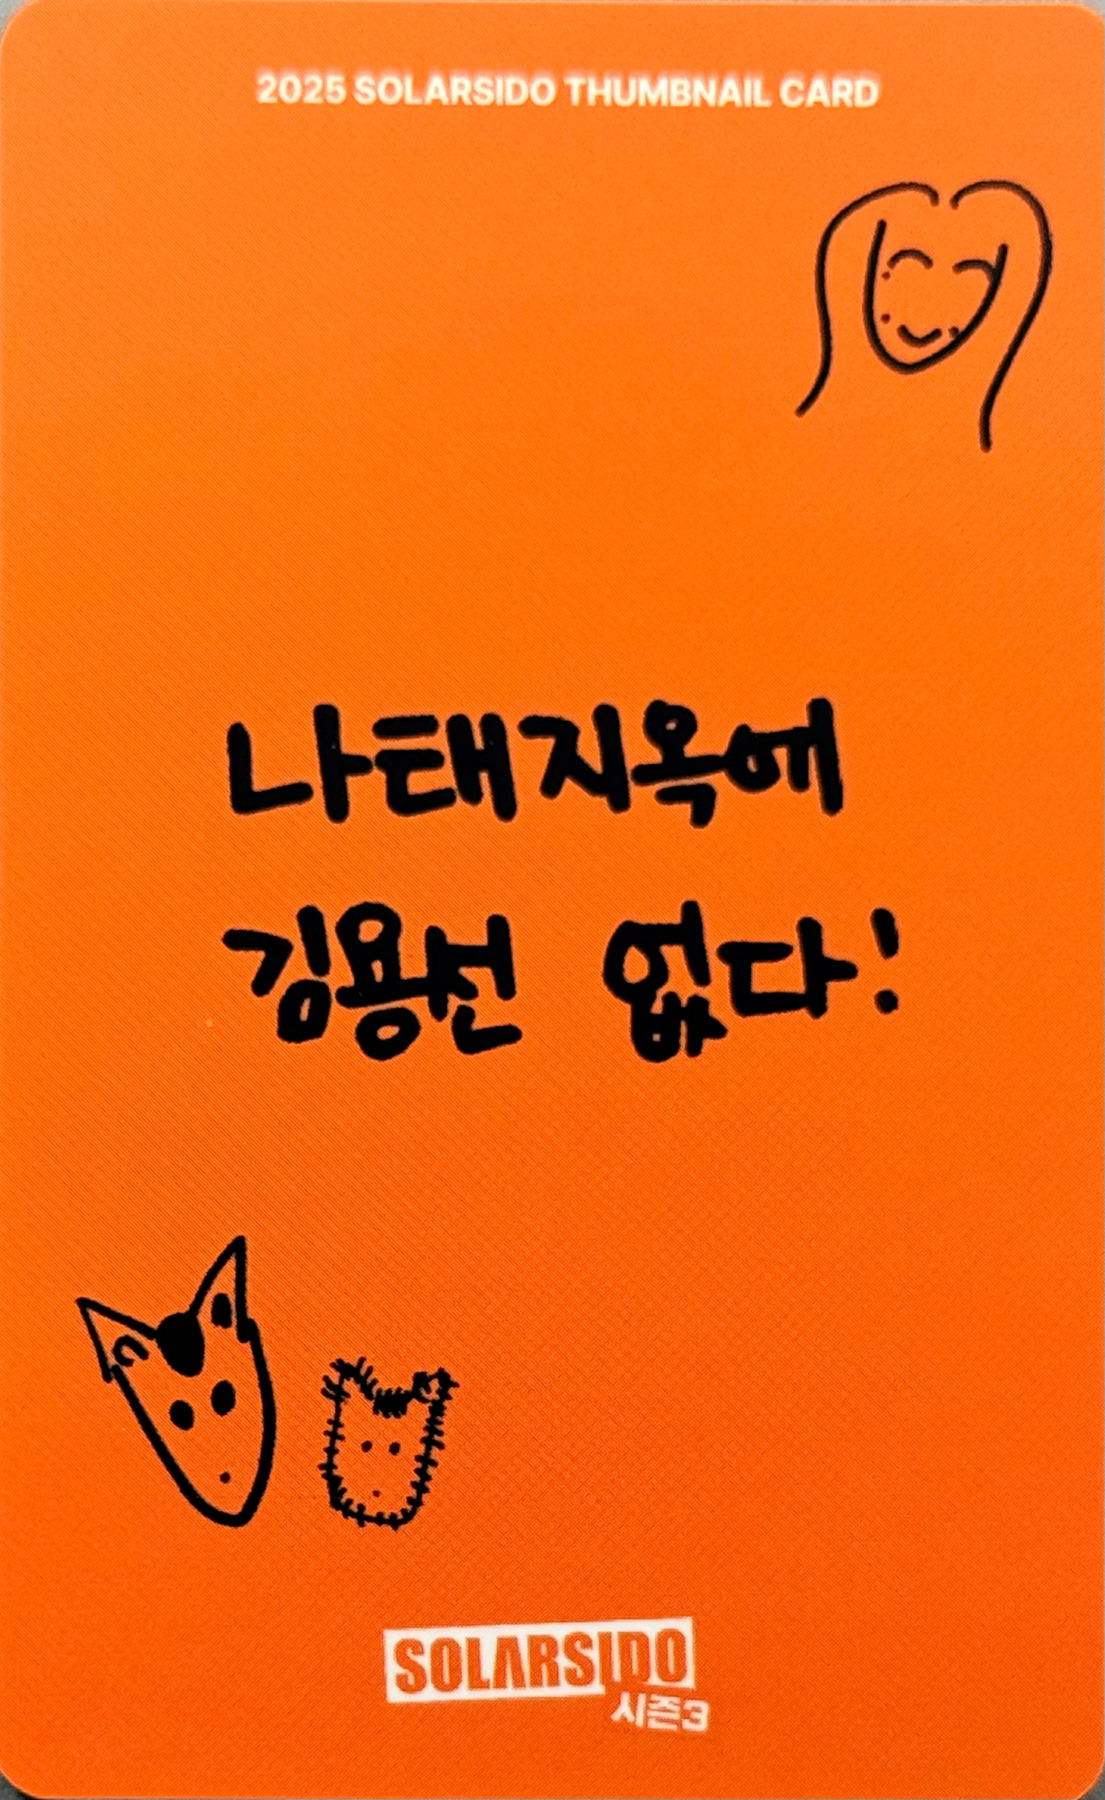 2025 SOLARSIDO THUMBNAIL CARD
나태지옥에
김용선 없다!
SOLARSIDO
시즌3